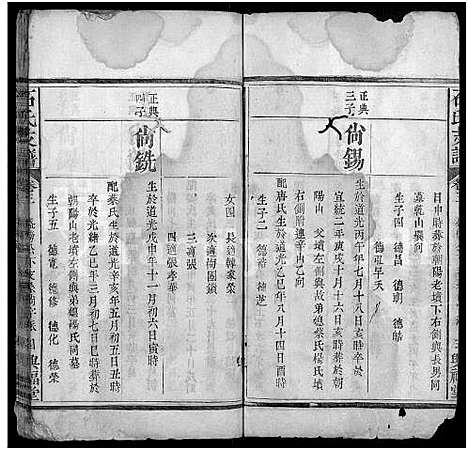 石氏支譜
卷三
日申時葬於朝陽老墳下右側與長男同
墓乾山巽向
生子四 德昌 德朝 德皓
德珽早夭
正典三子
尙錫
生於道光丙午年七月十八日亥時卒於
宣統二年庚戌十月十六日亥時葬於朝
陽山 父墳左側與故弟媳蔡楊氏墳
右側連辛山乙向
配唐氏生於道光己巳年八月十四日酉時
生子二 德裕 德芝
石氏支譜
卷三
女四 長適韓家榮
次適胡國鎮
三適張
四適張孝華
正典四子
尙銑
生於道光戊申年十一月初六日寅時
配秦氏生於道光辛亥年五月初五日丑時
卒於光緒乙巳年三月初七日巳時葬於
朝陽山老墳左側與弟媳楊氏同墓
生子五 德寬 德修 德化 德榮
興福堂